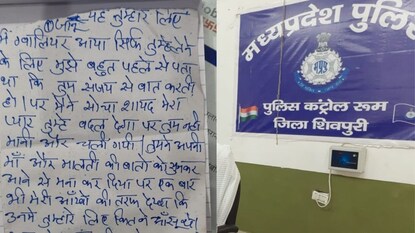 जान यह तुम्हारे लिए
मैं ग्वालियर आया सिर्फ तुम्हे लेने
के लिए मुझे बहुत पहले से पता
था कि तुम संजय से बात करती
हो। पर मैंने सोचा शायद मेरा
प्यार तुम्हे बदल देगा पर तुम नही
मानी और चली गयी। तुमने अपनी
माँ और मालती की बातो को सुनकर
आने से मना कर दिया पर एक बार
भी मेरी आँखों की तरफ देखा कि
उनमें तुम्हारे लिए कितने आँसू थे।
मध्यप्रदेश पुलिस
पुलिस कंट्रोल रूम
जिला शिवपुरी